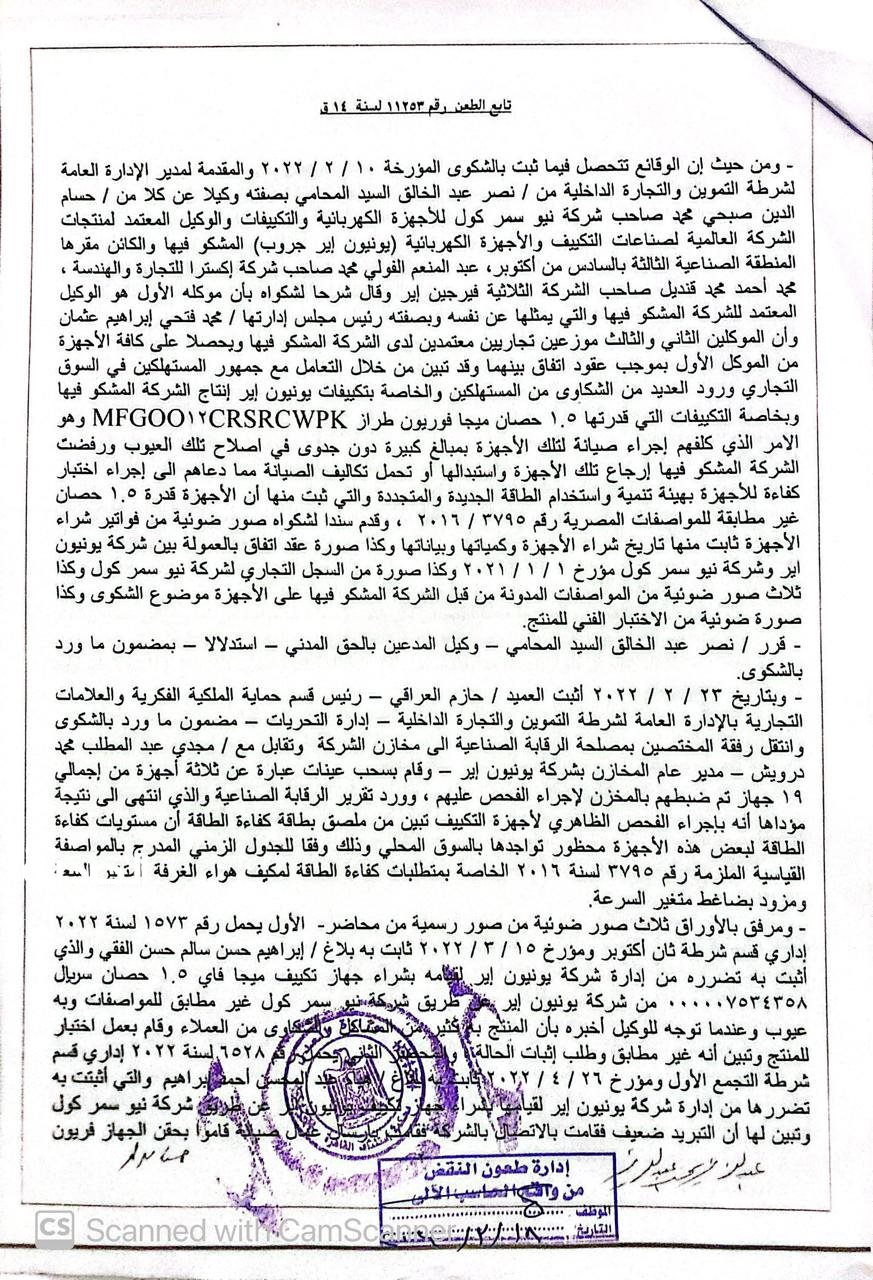 تابع الطعن رقم ١١٢٥٣ لسنة ١٤ ق
- ومن حيث إن الوقائع تتحصل فيما ثبت بالشكوى المؤرخة ١٠ / ٢ / ٢٠٢٢ والمقدمة لمدير الإدارة العامة
لشرطة التموين والتجارة الداخلية من / نصر عبد الخالق السيد المحامي بصفته وكيلا عن كلا من / حسام
الدين صبحي محمد صاحب شركة نيو سمر كول للأجهزة الكهربائية والتكييفات والوكيل المعتمد لمنتجات
الشركة العالمية لصناعات التكييف والأجهزة الكهربائية (يونيون إير جروب) المشكو فيها والكائن مقرها
المنطقة الصناعية الثالثة بالسادس من أكتوبر، عبد المنعم الفولي محمد صاحب شركة إكسترا للتجارة والهندسة ،
محمد أحمد محمد قنديل صاحب الشركة الثلاثية فيرجين إير وقال شرحا لشكواه بأن موكله الأول هو الوكيل
المعتمد للشركة المشكو فيها والتي يمثلها عن نفسه وبصفته رئيس مجلس إدارتها / محمد فتحي إبراهيم عثمان
وأن الموكلين الثاني والثالث موزعين تجاريين معتمدين لدى الشركة المشكو فيها ويحصلا على كافة الأجهزة
من الموكل الأول بموجب عقود اتفاق بينهما وقد تبين من خلال التعامل مع جمهور المستهلكين في السوق
التجاري ورود العديد من الشكاوى من المستهلكين والخاصة بتكييفات يونيون إير إنتاج الشركة المشكو فيها
وبخاصة التكييفات التي قدرتها ١.٥ حصان ميجا فوريون طراز MFGOO١٢CRSRCWPK وهو
الامر الذي كلفهم إجراء صيانة لتلك الأجهزة بمبالغ كبيرة دون جدوى في اصلاح تلك العيوب ورفضت
الشركة المشكو فيها إرجاع تلك الأجهزة واستبدالها أو تحمل تكاليف الصيانة مما دعاهم الى إجراء اختبار
كفاءة للأجهزة بهيئة تنمية واستخدام الطاقة الجديدة والمتجددة والتي ثبت منها أن الأجهزة قدرة ١.٥ حصان
غير مطابقة للمواصفات المصرية رقم ٣٧٩٥ / ٢٠١٦ ، وقدم سندا لشكواه صور ضوئية من فواتير شراء
الأجهزة ثابت منها تاريخ شراء الأجهزة وكمياتها وبياناتها وكذا صورة عقد اتفاق بالعمولة بين شركة يونيون
اير وشركة نيو سمر كول مؤرخ ١ / ١ / ٢٠٢١ وكذا صورة من السجل التجاري لشركة نيو سمر كول وكذا
ثلاث صور ضوئية من المواصفات المدونة من قبل الشركة المشكو فيها على الأجهزة موضوع الشكوى وكذا
صورة ضوئية من الاختبار الفني للمنتج.
- قرر / نصر عبد الخالق السيد المحامي – وكيل المدعين بالحق المدني – استدلالا – بمضمون ما ورد
بالشكوى.
- وبتاريخ ٢٣ / ٢ / ٢٠٢٢ أثبت العميد / حازم العراقي – رئيس قسم حماية الملكية الفكرية والعلامات
التجارية بالإدارة العامة لشرطة التموين والتجارة الداخلية – إدارة التحريات – مضمون ما ورد بالشكوى
وانتقل رفقة المختصين بمصلحة الرقابة الصناعية الى مخازن الشركة وتقابل مع / مجدي عبد المطلب محمد
درويش – مدير عام المخازن بشركة يونيون إير – وقام بسحب عينات عبارة عن ثلاثة أجهزة من إجمالي
١٩ جهاز تم ضبطهم بالمخزن لإجراء الفحص عليهم ، وورد تقرير الرقابة الصناعية والذي انتهى الى نتيجة
مؤداها أنه بإجراء الفحص الظاهري لأجهزة التكييف تبين من ملصق بطاقة كفاءة الطاقة أن مستويات كفاءة
الطاقة لبعض هذه الأجهزة محظور تواجدها بالسوق المحلي وذلك وفقا للجدول الزمني المدرج بالمواصفة
القياسية الملزمة رقم ٣٧٩٥ لسنة ٢٠١٦ الخاصة بمتطلبات كفاءة الطاقة لمكيف هواء الغرفة
ومزود بضاغط متغير السرعة.
- ومرفق بالأوراق ثلاث صور ضوئية من صور رسمية من محاضر- الأول يحمل رقم ١٥٧٣ لسنة ٢٠٢٢
إداري قسم شرطة ثان أكتوبر ومؤرخ ١٥ / ٣ / ٢٠٢٢ ثابت به بلاغ / إبراهيم حسن سالم حسن الفقي والذي
أثبت به تضرره من إدارة شركة يونيون إير لقيامه بشراء جهاز تكييف ميجا فاي ١.٥ حصان سريال
٠٠٠٠٠٠٧٥٣٤٣٥٨ من شركة يونيون إير عن طريق شركة نيو سمر كول غير مطابق للمواصفات وبه
عيوب وعندما توجه للوكيل أخبره بأن المنتج به كثير من المشاكل والشكاوى من العملاء وقام بعمل اختبار
للمنتج وتبين أنه غير مطابق وطلب إثبات الحالة، والمحضر الثاني يحمل رقم ٦٥٢٨ لسنة ٢٠٢٢ إداري قسم
شرطة التجمع الأول ومؤرخ ٢٦ / ٤ / ٢٠٢٢ ثابت به بلاغ / عبد المحسن أحمد إبراهيم والتي أثبتت به
تضررها من إدارة شركة يونيون إير لقيامها بشراء جهاز تكييف يونيون إير عن طريق شركة نيو سمر كول
وتبين لها أن التبريد ضعيف فقامت بالاتصال بالشركة فقامت بإرسال عمال صيانة قاموا بحقن الجهاز فريون
إدارة طعون النقض
من واقع الحاسب الآلي
الموظف
التاريخ:
CS Scanned with CamScanner